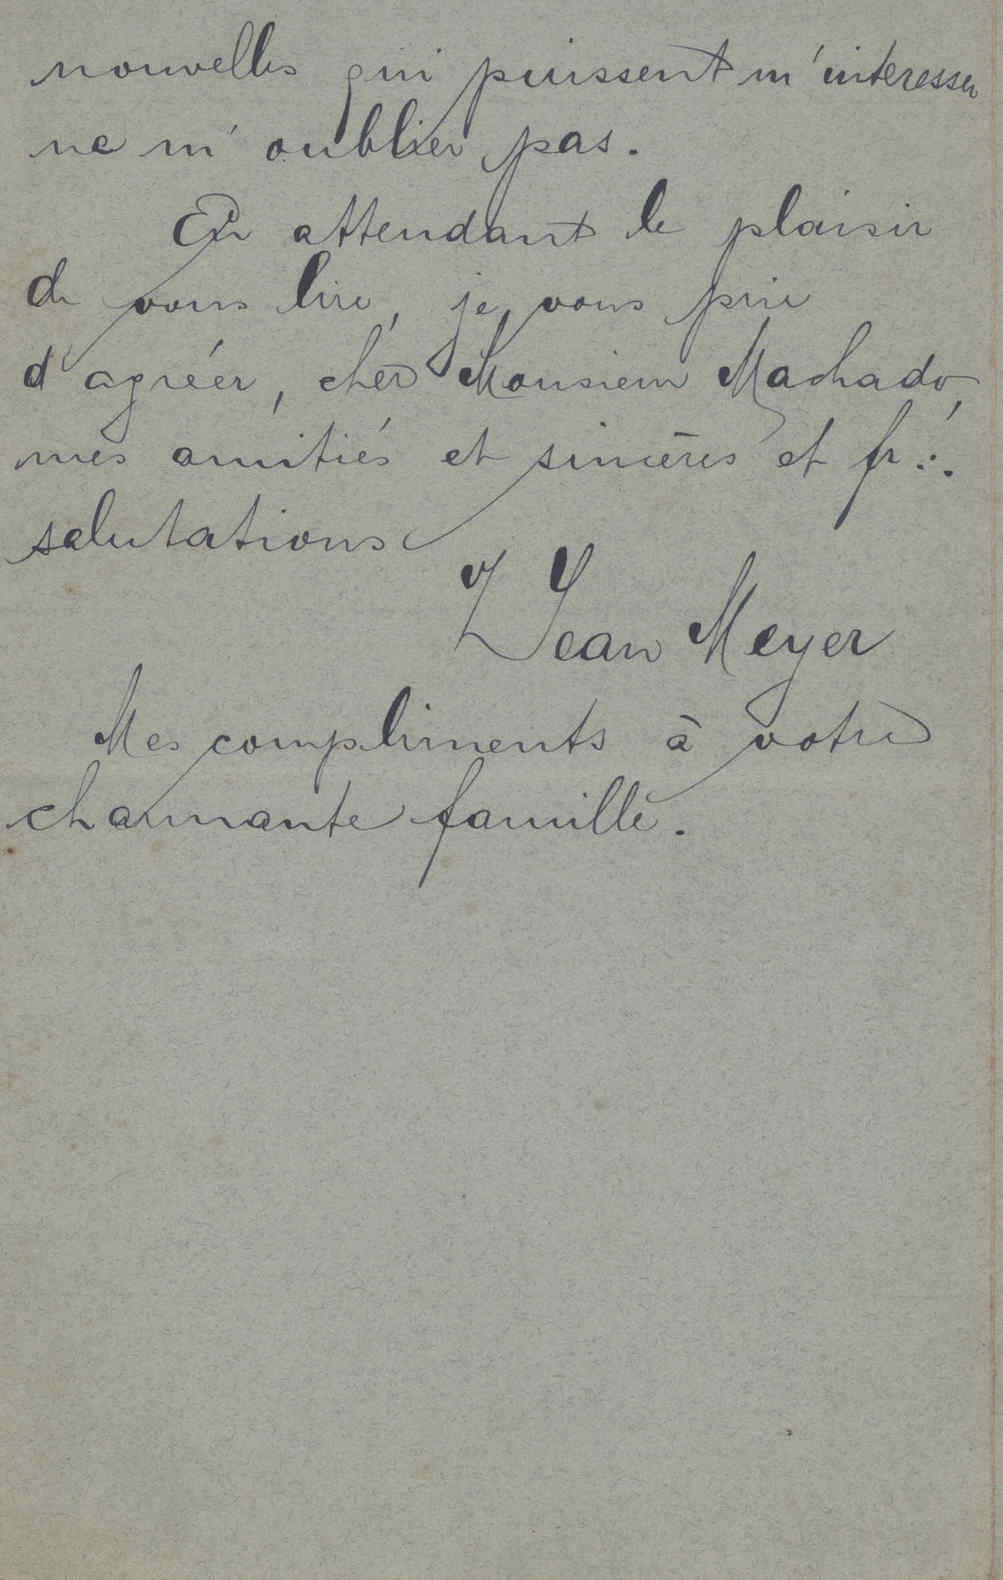 nouvelles qui puissent m'intéresser
ne m'oublier pas.
En attendant le plaisir
de vous lire, je vous prie
d'agréer, cher Monsieur Machado,
mes amitiés et sincères et fr∴
salutations
Jean Meyer
Mes compliments à votre
charmante famille.